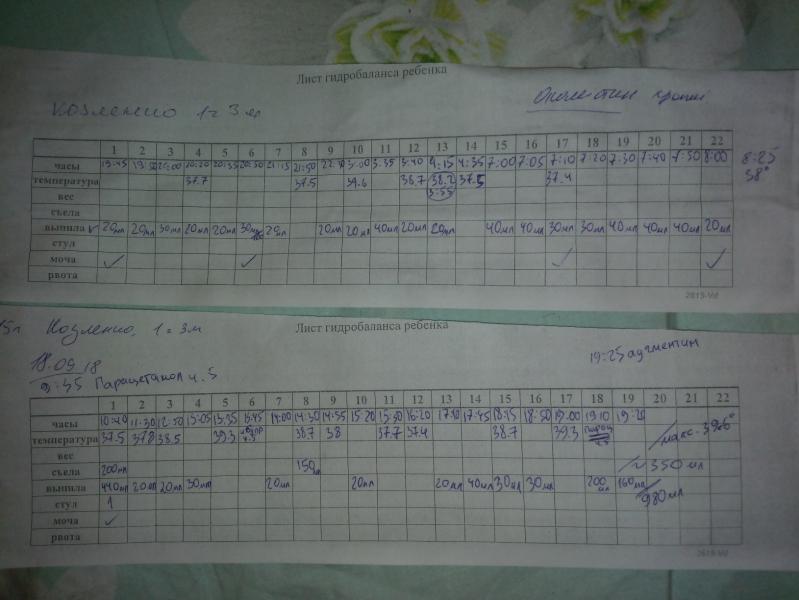 Лист гидробаланса ребенка
1г 3м
1 2 3 4 5 6 7 8 9 10 11 12 13 14 15 16 17 18 19 20 21 22
часы 19:45 20:20 20:35 20:50 21:15 21:50 3:35 3:40 4:15 4:35 7:00 7:05 7:10 7:20 7:30 7:40 7:50 8:00 8:25
температура 37.7 37.5 39.6 38.7 38.2 37.5 37.4 38°
3:55
вес
съела
выпила 20мл 20мл 30мл 20мл 20мл 20мл 20мл 20мл 40мл 20мл 20мл 40мл 40мл 30мл 30мл 40мл 40мл 40мл 20мл
стул
моча ✓ ✓ ✓ ✓
рвота
2619-Vd
1г 3м Лист гидробаланса ребенка
18.09.18 19:25 аугментин
Парацетамол
1 2 3 4 5 6 7 8 9 10 11 12 13 14 15 16 17 18 19 20 21 22
часы 10:40 11:30 12:50 13:05 13:35 13:45 14:00 14:30 14:55 15:20 15:50 16:20 17:10 17:45 18:15 18:50 19:00 19:10 19:20
температура 37.5 37.8 38.5 39.3 38.7 38 37.7 37.4 38.7 39.3 макс - 39.6°
вес
съела 200мл 150мл ~350 мл
выпила 20мл 20мл 30мл 20мл 20мл 20мл 40мл 30мл 30мл 200мл 160мл 980мл
стул 1
моча ✓
рвота
2619-Vd